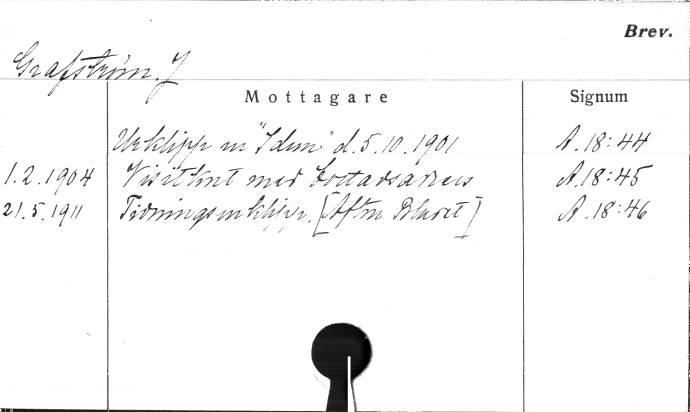 Brev.
Grafström. J
Mottagare
Signum
Urklipp ur "Idun" d. 5.10.1901 A. 18:44
1.2.1904 Visitkort med bostadsadress A. 18:45
21.5.1911 Tidningsurklipp. [Aftonbladet] A. 18:46